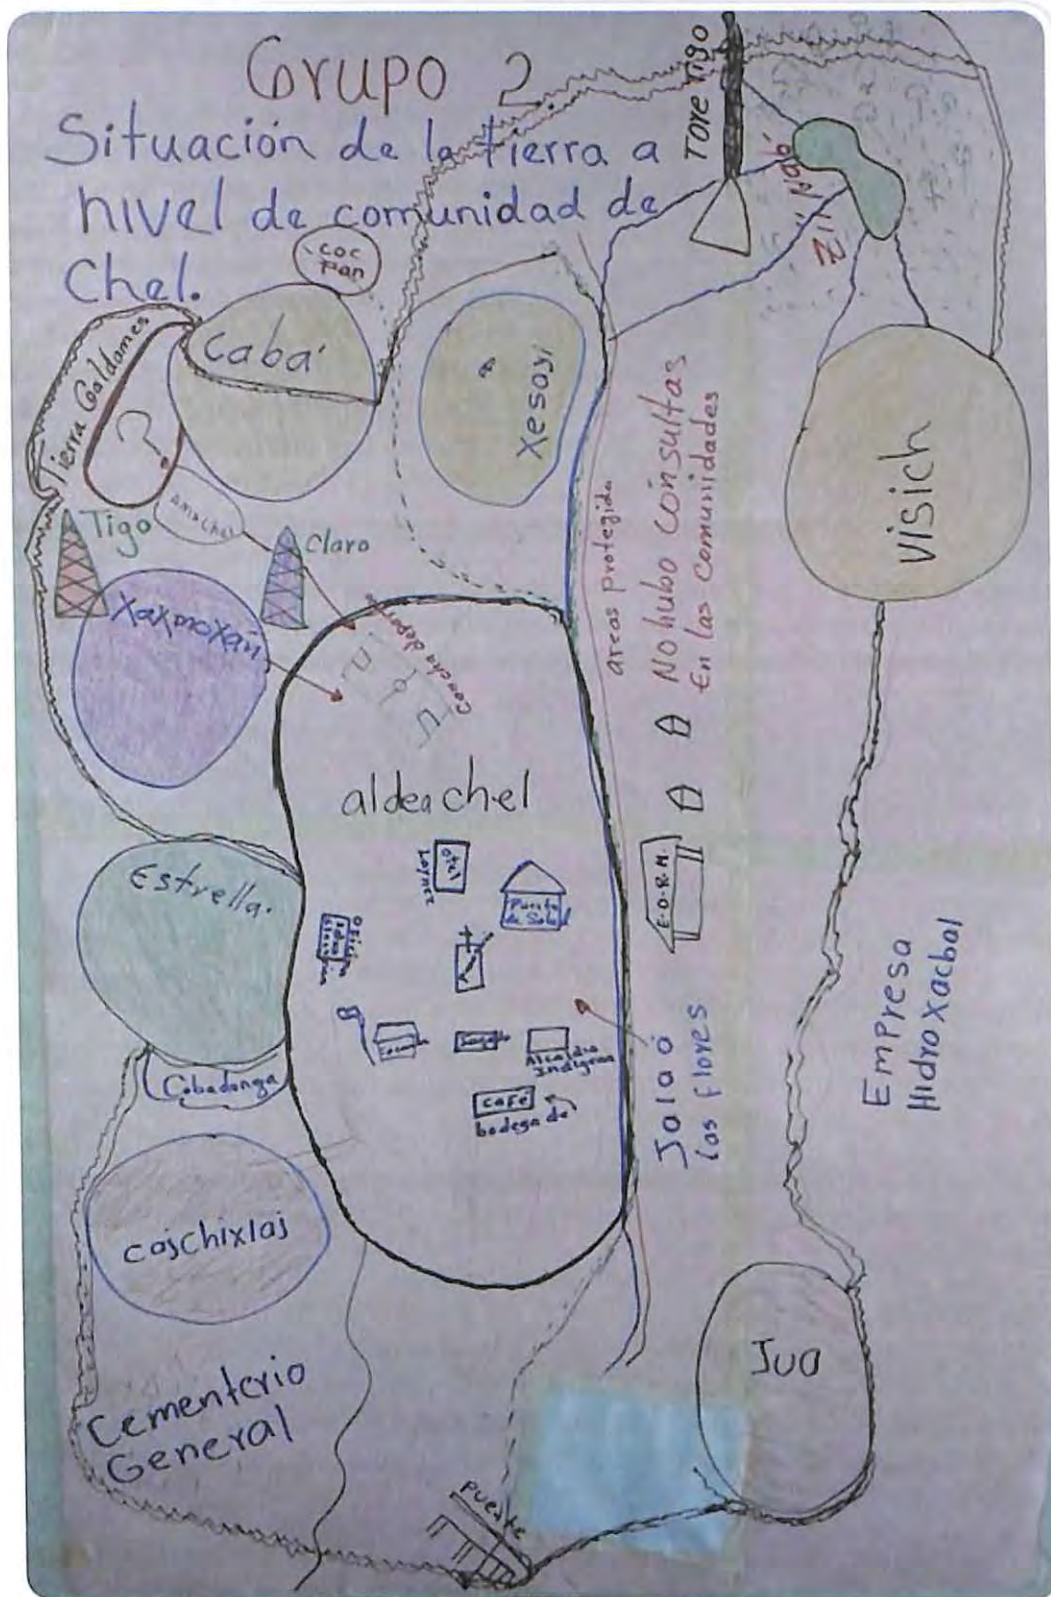 Grupo 2.
Situación de la tierra a
nivel de comunidad de
Chel.
Tore Tigo
coc
Pon
Caba'
Xesayi
Visich
Tierra Galdames
?
Amachel
Tigo
Claro
Xaxmoxán
Cancha deport
areas protegida
No hubo consultas
En las comunidades
aldea chel
Estrella.
Puesto
de Salud
E.O.R.M.
Alcaldia
Indigena
café
bodega de
Jala ó
las flores
Empresa
Hidroxacbal
Cobadonga
cajchixlaj
Cementerio
General
Jua
puente